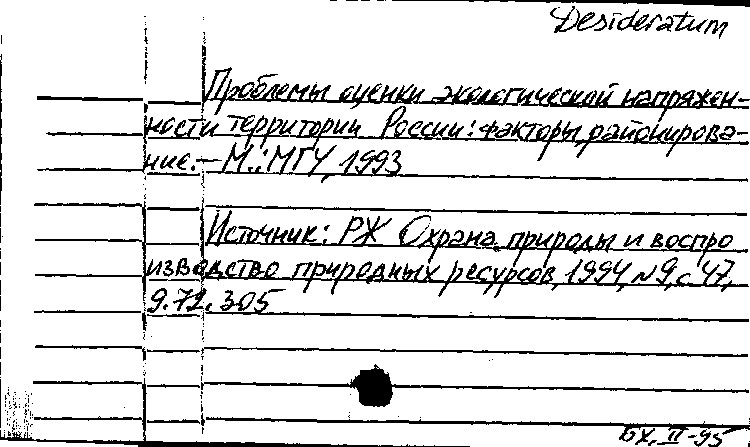 Desideratum
Проблемы оценки экологической напряжен-
ности территории России: факторы, районирова-
ние. – М.: МГУ, 1993
Источник: РЖ Охрана природы и воспро
изводство природных ресурсов, 1994, №9, с. 47,
9.72.305
БХ, II-95